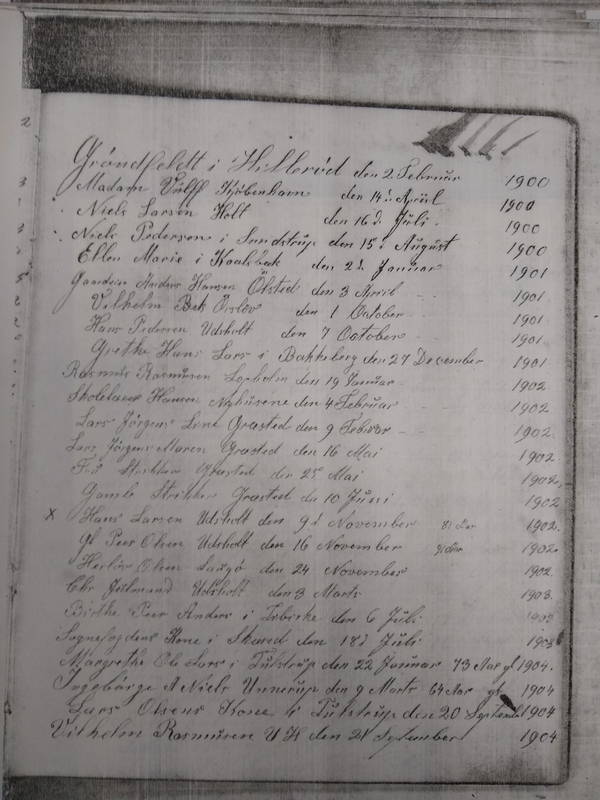 Gröndfeldt i Hilleröd den 2 Februar 1900
Madam Vulff Kjöbenhavn den 14d Apriil 1900
Niels Larsen Holt den 16d Juli 1900
Niels Pedersen i Sundstrup den 15d August 1900
Ellen Marie i Kaalbæk den 2d Januar 1901
Anders Hansen Ölsted den 3 April 1901
Vilhelm Bek Örslöv den 1 October 1901
Hans Pedersen Udsholt den 7 October 1901
Grethe Hans Lars i Bakkebjerg den 27 December 1901
Rasmus Rasmusen den 19 Januar 1902
Skolelærer Hansen Nyhusene den 4 Februar 1902
Lars Jörgens Lene Græsted den 9 Februar 1902
Lars Jörgens Maren Græsted den 16 Mai 1902
Græsted den 25 Mai 1902
Gamle Strikker Græsted den 10 Juni 1902
x Hans Larsen Udsholt den 9d November 81 Aar 1902
gl Peer Olsen Udsholt den 16 November 1902
Olsen den 24 November 1902
Chr Udsholt den 3 Marts 1903
Birthe Peer Anders i den 6 Juli 1903
Sognefogdens Kone i den 18d Juli 1903
Margrethe Ole Lars i Tulstrup den 22 Januar 73 Aar gl 1904
Ingeborge A Niels Unnerup den 9 Marts 64 Aar gl 1904
Lars Olsens Kone i Tulstrup den 20 September 1904
Vilhelm Rasmusen U H den 21 September 1904